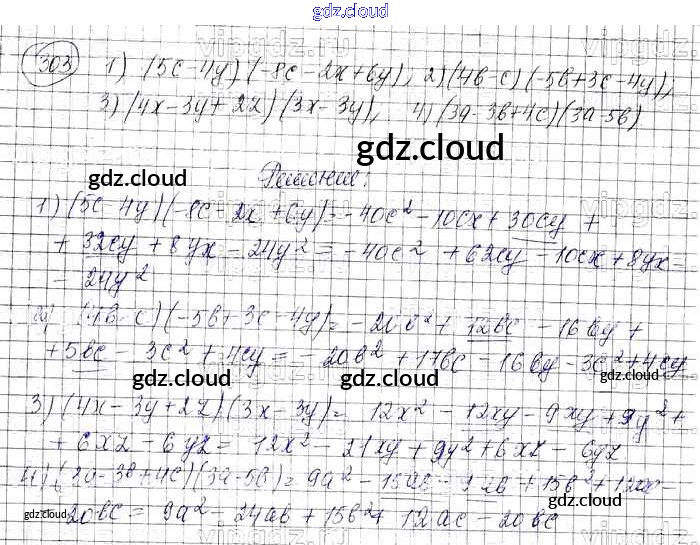 gdz.cloud
303 1) (5c-4y)(-8c-2x+6y), 2) (4b-c)(-5b+3c-4y);
3) (4x-3y+2z)(3x-3y), 4) (3a-3b+4c)(3a-5b)
gdz.cloud
gdz.cloud Решение:
1) (5c-4y)(-8c-2x+6y)=-40c²-10cx+30cy+
+32cy+8yx-24y²=-40c²+62cy-10cx+8yx-
-24y²
gdz.cloud
2) (4b-c)(-5b+3c-4y)=-20b²+12bc-16by+
+5bc-3c²+4cy=-20b²+17bc-16by-3c²+4cy
gdz.cloud gdz.cloud gdz.cloud
3) (4x-3y+2z)(3x-3y)=12x²-12xy-9xy+9y²+
+6xz-6yz=12x²-21xy+9y²+6xz-6yz
4) (3a-3b+4c)(3a-5b)=9a²-15ab-9ab+15b²+12ac-
gdz.cloud gdz.cloud gdz.cloud
-20bc=9a²-24ab+15b²+12ac-20bc